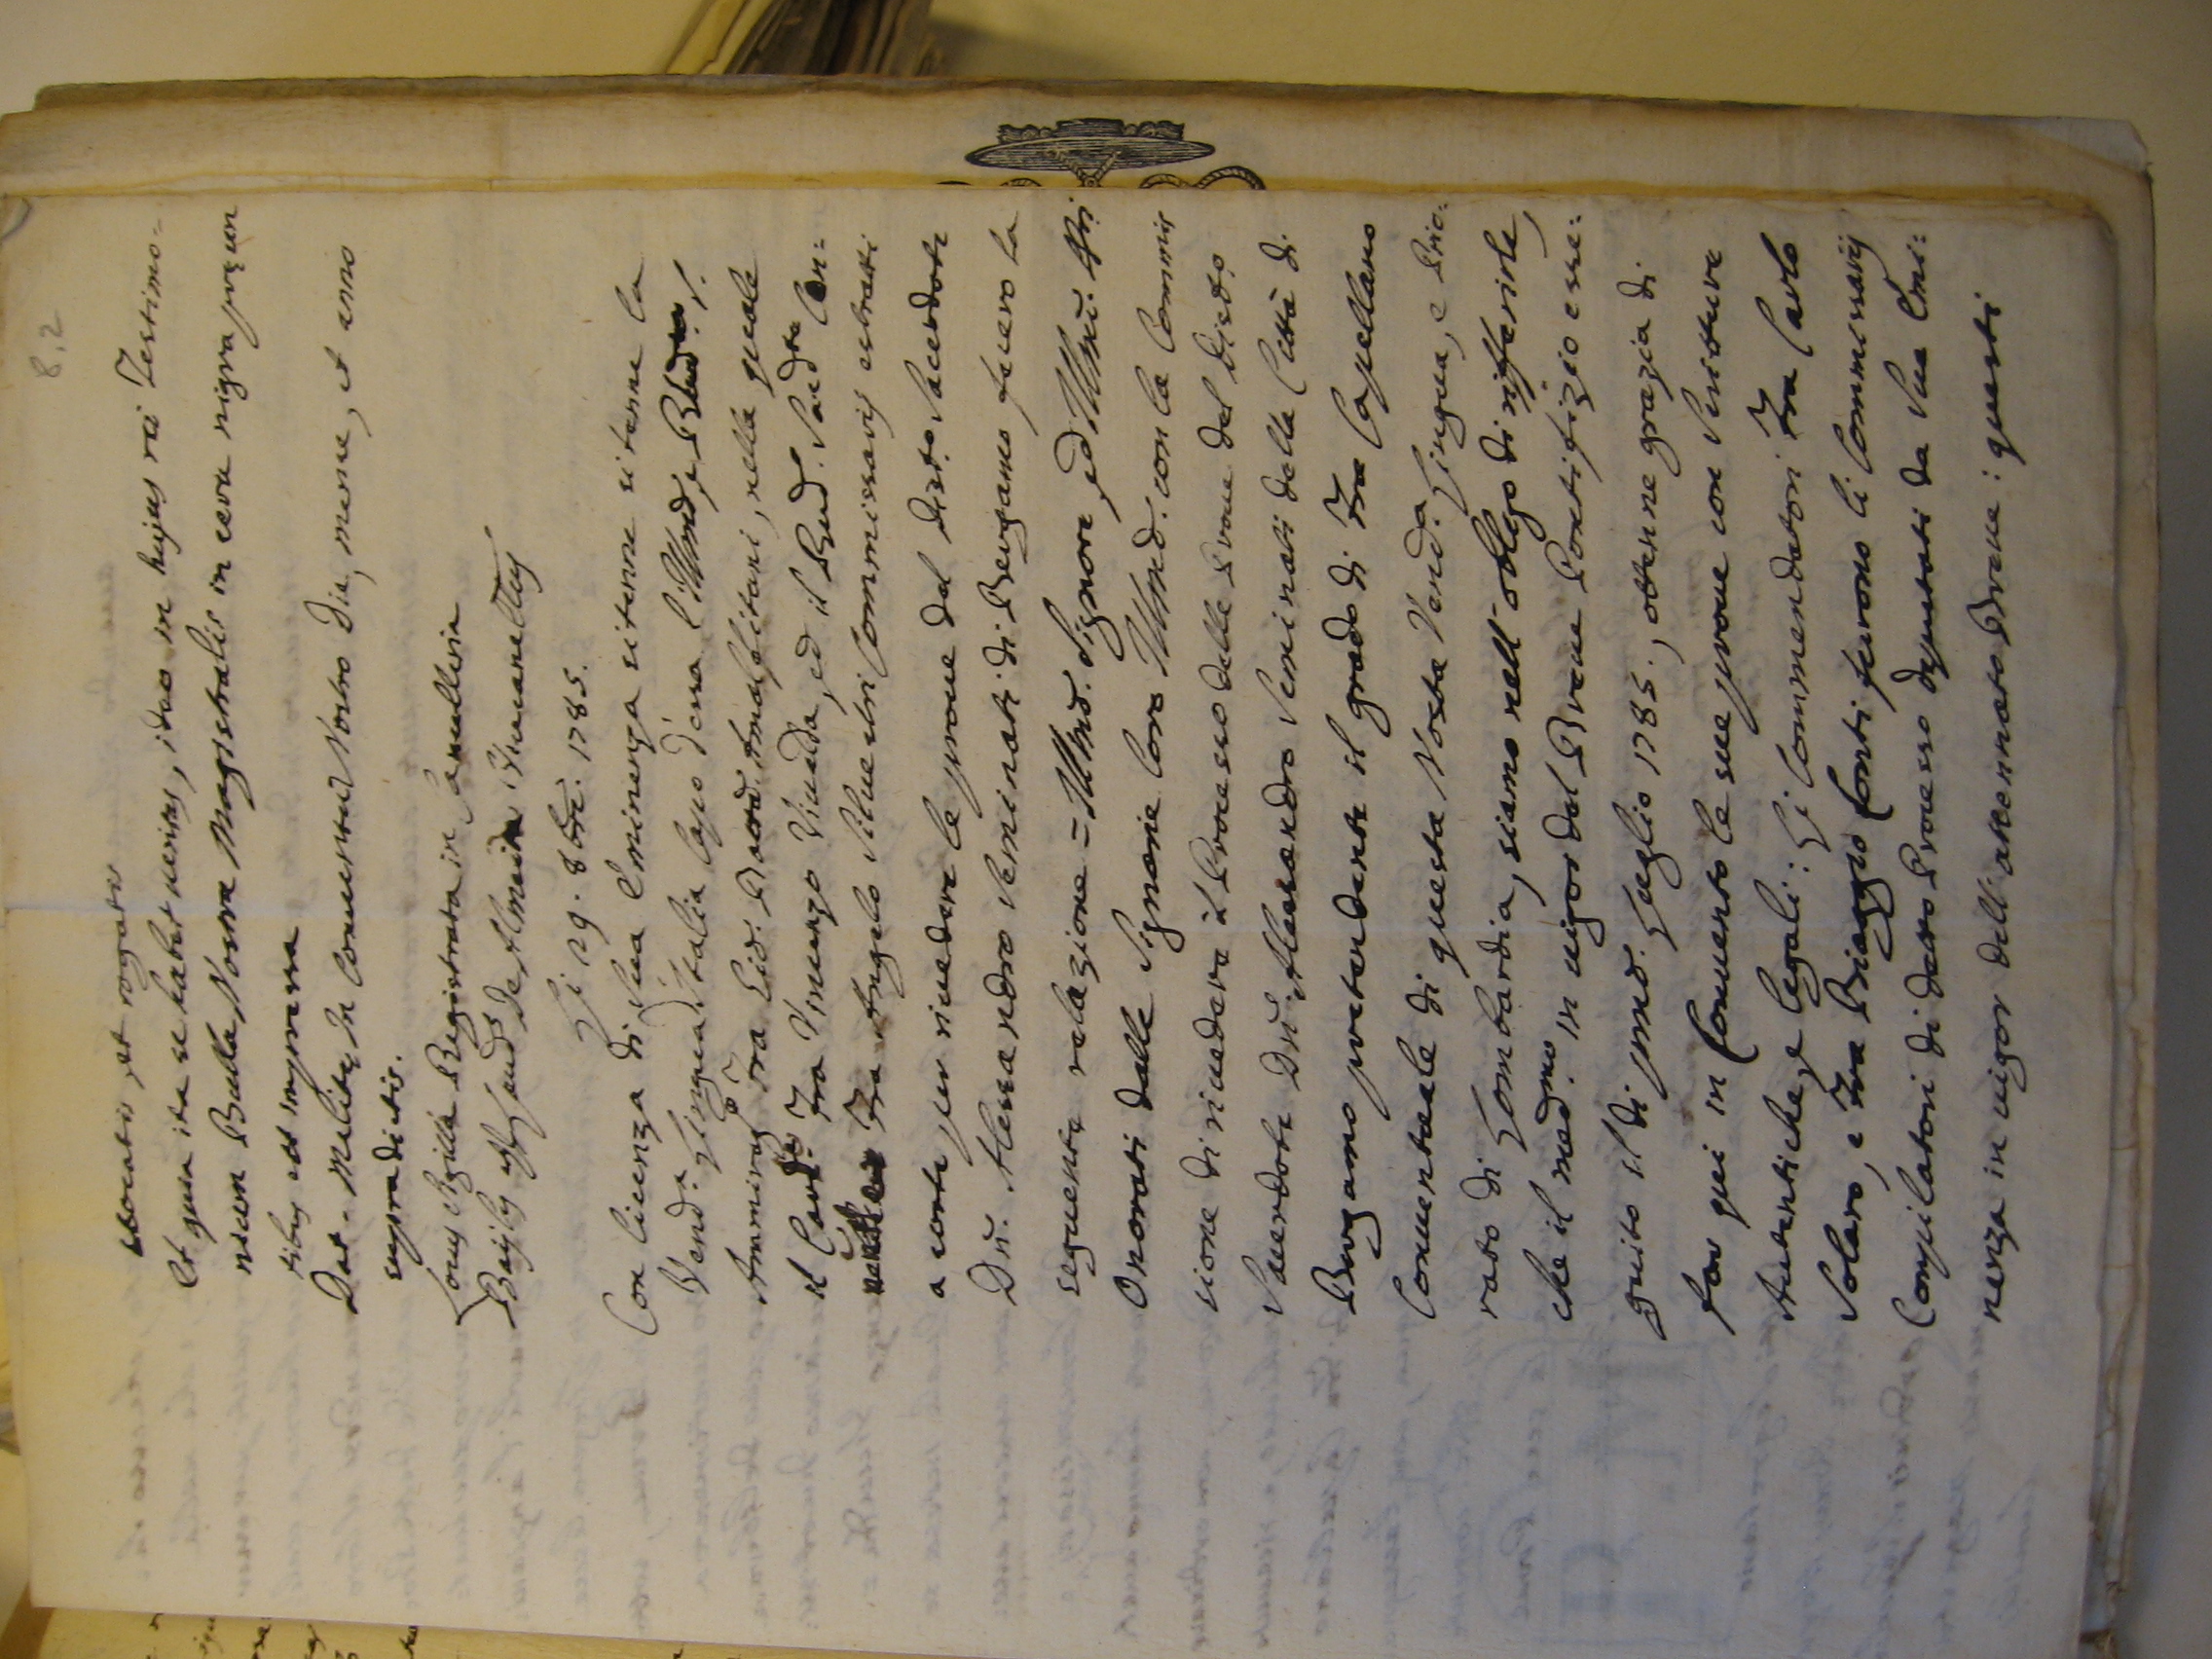 8,2
vocatis, et rogatis
Et quia ita se habet veritas, ideo in hujus rei Testimo=
nium Bulla Nostra Magistralis in cera nigra pñtibus
tibus est impressa
Dat. Melitę In Conventu Nostro Die, mense, et anno
supradictis.
Registrata in Cancellaria
Bajlig
Li 29. 8bre. 1785.
Con licenza di Sua Eminenza si tenne si tenne la
Vendª. Lingua d'Italia Capo d'essa l'Illmo, e
Ammirag.º Fra Amalfitani, nella quale
il Fra Vincenzo ed il
Fra Angelo Commissarij estratti
a sorte per rivedere le prove del Sacerdote
Dn. Alessandro Verninati di Bergamo fecero la
seguente relazione = Signore, ed
Onorati dalle Signorie Loro con la Commis
sione di rivedere il Processo delle Prove del
Sacerdote Dn. Alessandro Verninati della Città di
Bergamo pretendente il grado di Fra Capellano
Conventuale di questa Nostra Vendª. Lingua, e Prio=
rato di Lombardia, siamo nell' obligo di riferirle,
che il medmo. in vigor del Breve Pontifizio ese=
guito il di pmo. Luglio 1785., ottenne grazia di
far qui in Convento le sue prove con Scritture
Autentiche, e legali: Li Commendatori Fra Carlo
Solaro, e Fra Biaggio Conti furono li Commissarij
Compilatori di detto Processo deputati da Sua Emi=
nenza in vigor dell' accennato Breve: questi